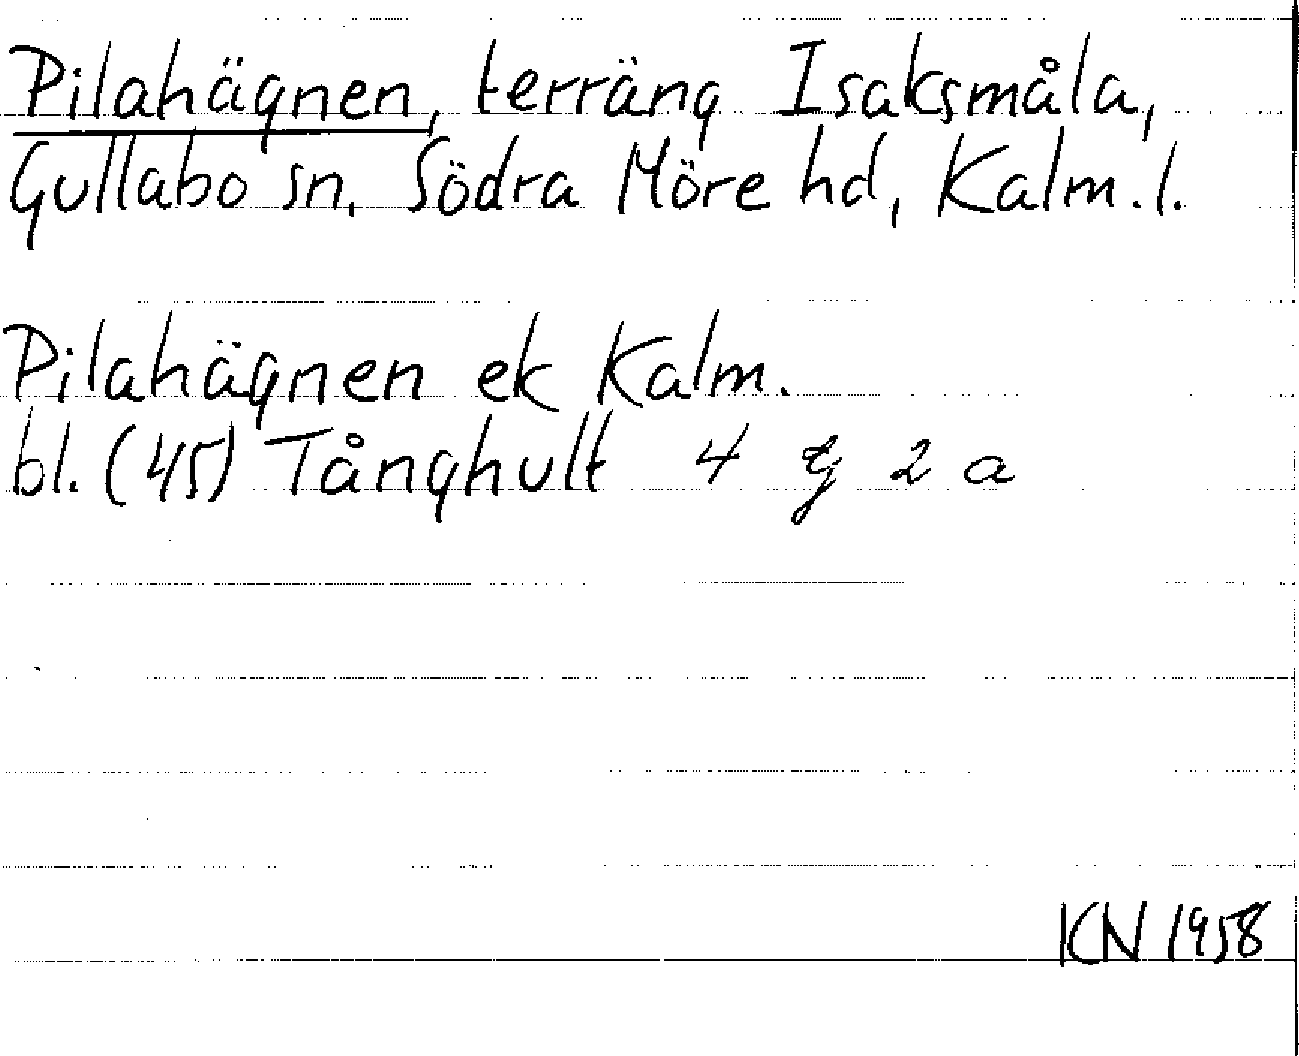 Pilahägnen, terräng Isaksmåla,
Gullabo sn, Södra Möre hd, Kalm. l.
Pilahägnen ek Kalm.
bl. (45) Tånghult 4 g 2 a
KN 1958